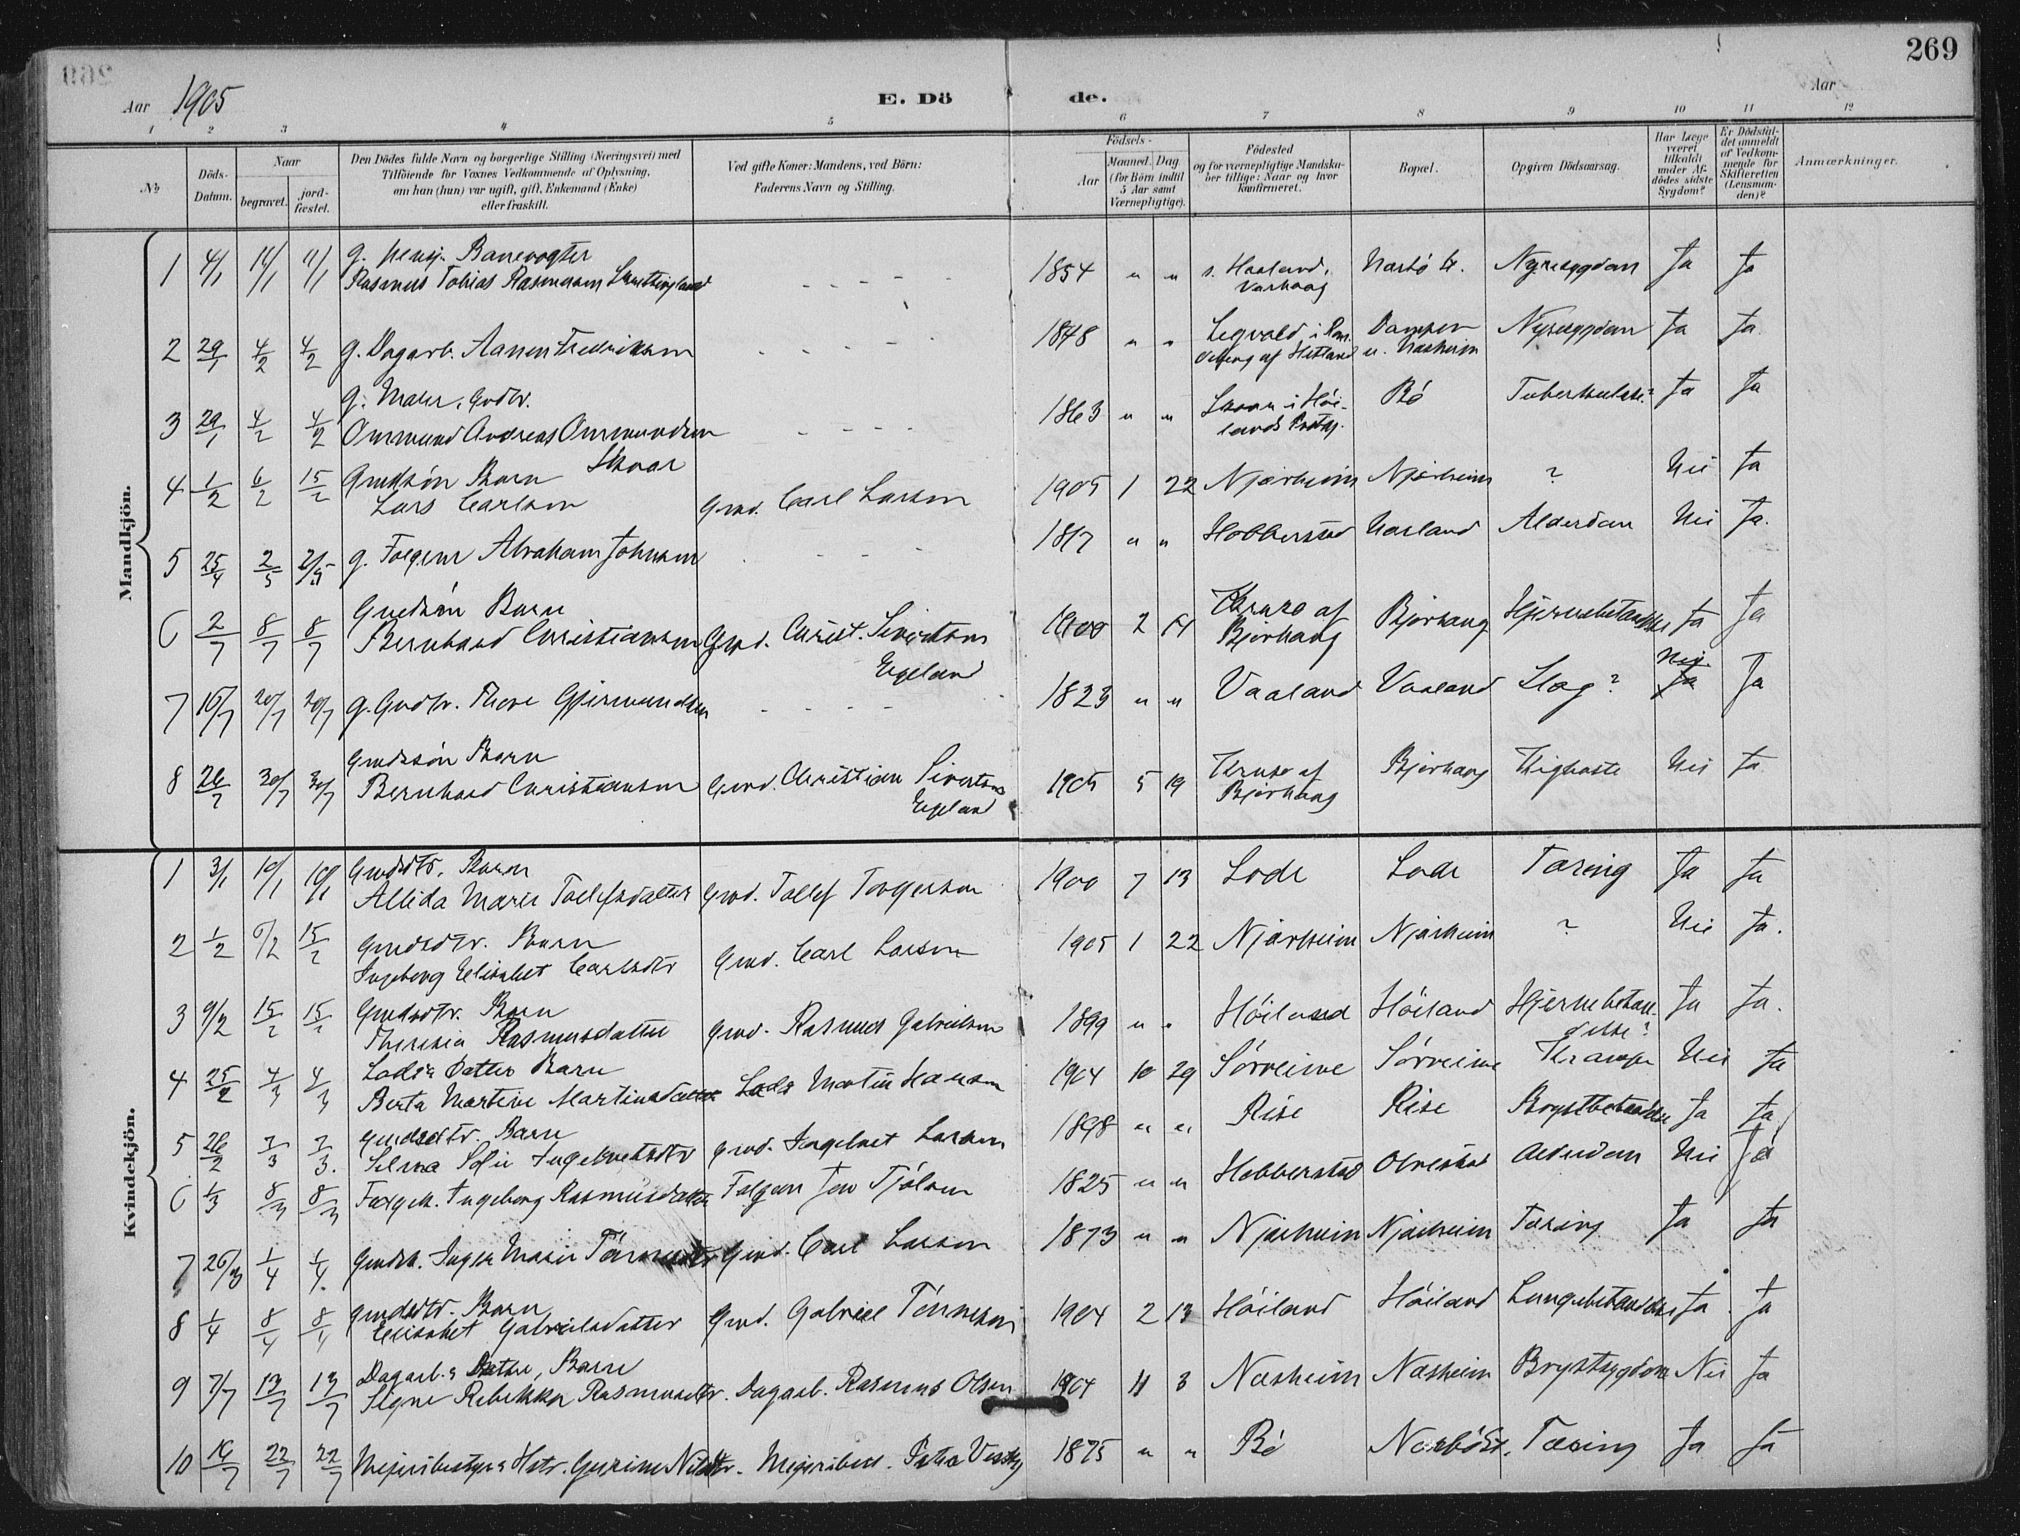 269
Aar 1905
E. Döde.
Aar
1 2 3 4 5 6 7 8 9 10 11 12
No
Döds-Datum.
Naar
begravet.
jord-fæstet.
Den Dödes fulde Navn og borgerlige Stilling (Næringsvei) med
Tilföiende for Voxnes Vedkommende af Oplysning,
om han (hun) var ugift, gift, Enkemand (Enke)
eller fraskilt.
Ved gifte Koner: Mandens, ved Börn:
Faderens Navn og Stilling.
Födsels-
Aar
Maaned. Dag
(for Börn indtil
5 Aar samt
Værnepligtige).
Födested
og for værnepligtige Mandska-
ber tillige: Naar og hvor
konfirmeret.
Bopæl.
Opgiven Dödsaarsag.
Har Læge
været
tilkaldt
under Af-
dödes sidste
Sygdom?
Er Dödsfal-
det anmeldt
af Vedkom-
mende for
Skifteretten
(Lensman-
den)?
Anmærkninger.
Mandkjön.
1 4/1 11/1 11/1 g. pensj. Banevogter
Rasmus Tobias Rasmussen - - - - 1854 " " s. Haaland, Varhaug Nærbö St. Nyresygdom Ja Ja
2 29/1 4/2 4/2 g. Dagarb. Aanen Fredriksen - - - - 1848 " " Nyresygdom Ja Ja.
3 29/1 4/2 4/2 g. Maler, Gmdbr.
Ommund Andreas Ommundsen
Skaar - - - - 1863 " " Skaar i Höi-
lands Prstgj. Bö Tuberkulose? Ja Ja
4 1/2 6/2 15/2 Gmdsön Barn
Lars Carlsen Gmd. Carl Larsen 1905 1 22 Njærheim Njærheim ? Nei Ja
5 25/4 2/5 2/5 g. Folgem. Abraham Johnsen - - - 1817 " " Hobberstad Alderdom Nei Ja.
6 2/7 8/7 8/7 Gmdsön Barn
Bernhard Christiansen Gmd. Christ. Sivertsen
Egeland 1900 2 Kruse af
Bjorhaug Bjorhaug Hjernebetændelse Ja Ja
7 15/7 20/7 20/7 g. Gmdbr. Thore Gjermundsen - - - - 1823 " " Vaaland Vaaland Slag? Nei Ja Ja
8 26/7 30/7 30/7 Gmdssön Barn
Bernhard Christiansen Gmd. Christian Sivertsen
Egeland 1905 5 19 Kruse af
Bjorhaug Bjorhaug Kighoste Nei Ja
Kvindekjön.
1 3/1 10/1 10/1 Gmdsdtr. Barn
Allida Marie Tollefsdatter Gmd. Tollef Torgersen 1900 7 13 Lode Lode Tæring Ja Ja
2 1/2 6/2 15/2 Gmdsdtr. Barn
Ingeborg Elisabet Carlsdtr Gmd. Carl Larsen 1905 1 22 Njærheim Njærheim ? Nei Ja.
3 9/2 15/2 15/2 Gmdsdtr. Barn
Theresia Rasmusdatter Gmd. Rasmus Gabrielsen 1899 " " Höiland Höiland Hjernebetæn-
delse? Ja Ja.
4 25/2 4/3 4/3 Datter Barn
Berta Martine Martinsdatter Martin Hansen 1904 10 29 Sörreime Sörreime Krampe Nei Ja
5 26/2 7/3 7/3. Gmdsdtr. Barn
Selma Sofie Ingebretsdtr Gmd. Ingebret Larsen 1898 " " Rise Rise Brystbetændelse Ja Ja
6 1/3 8/3 8/3 Folgek. Ingeborg Rasmusdatter Folgem Jon Tjölsen 1825 " " Hobberstad Alderdom Nei Ja
7 26/3 1/4 1/4. Gmdsk. Inger Marie Gmd. Carl Larsen 1873 " " Njærheim Njærheim Tæring Ja Ja
8 1/4 8/4 8/4 Gmdsdtr. Barn
Elisabet Gabrielsdatter Gmd. Gabriel Tönnesen 1904 2 13 Höiland Höiland Lungebetændelse Ja Ja
9 7/7 13/7 13/7 Dagarb.s Datter, Barn
Signe Rebekka Rasmusdtr. Dagarb. Rasmus Olsen 1904 11 3 Næsheim Næsheim Brystsygdom Nei Ja
10 16/7 22/7 22/7 Meieribestyrers Hstr. Gurine Nilsdtr. Meieribest. 1875 " " Bö Nærbö St. Tæring Ja Ja